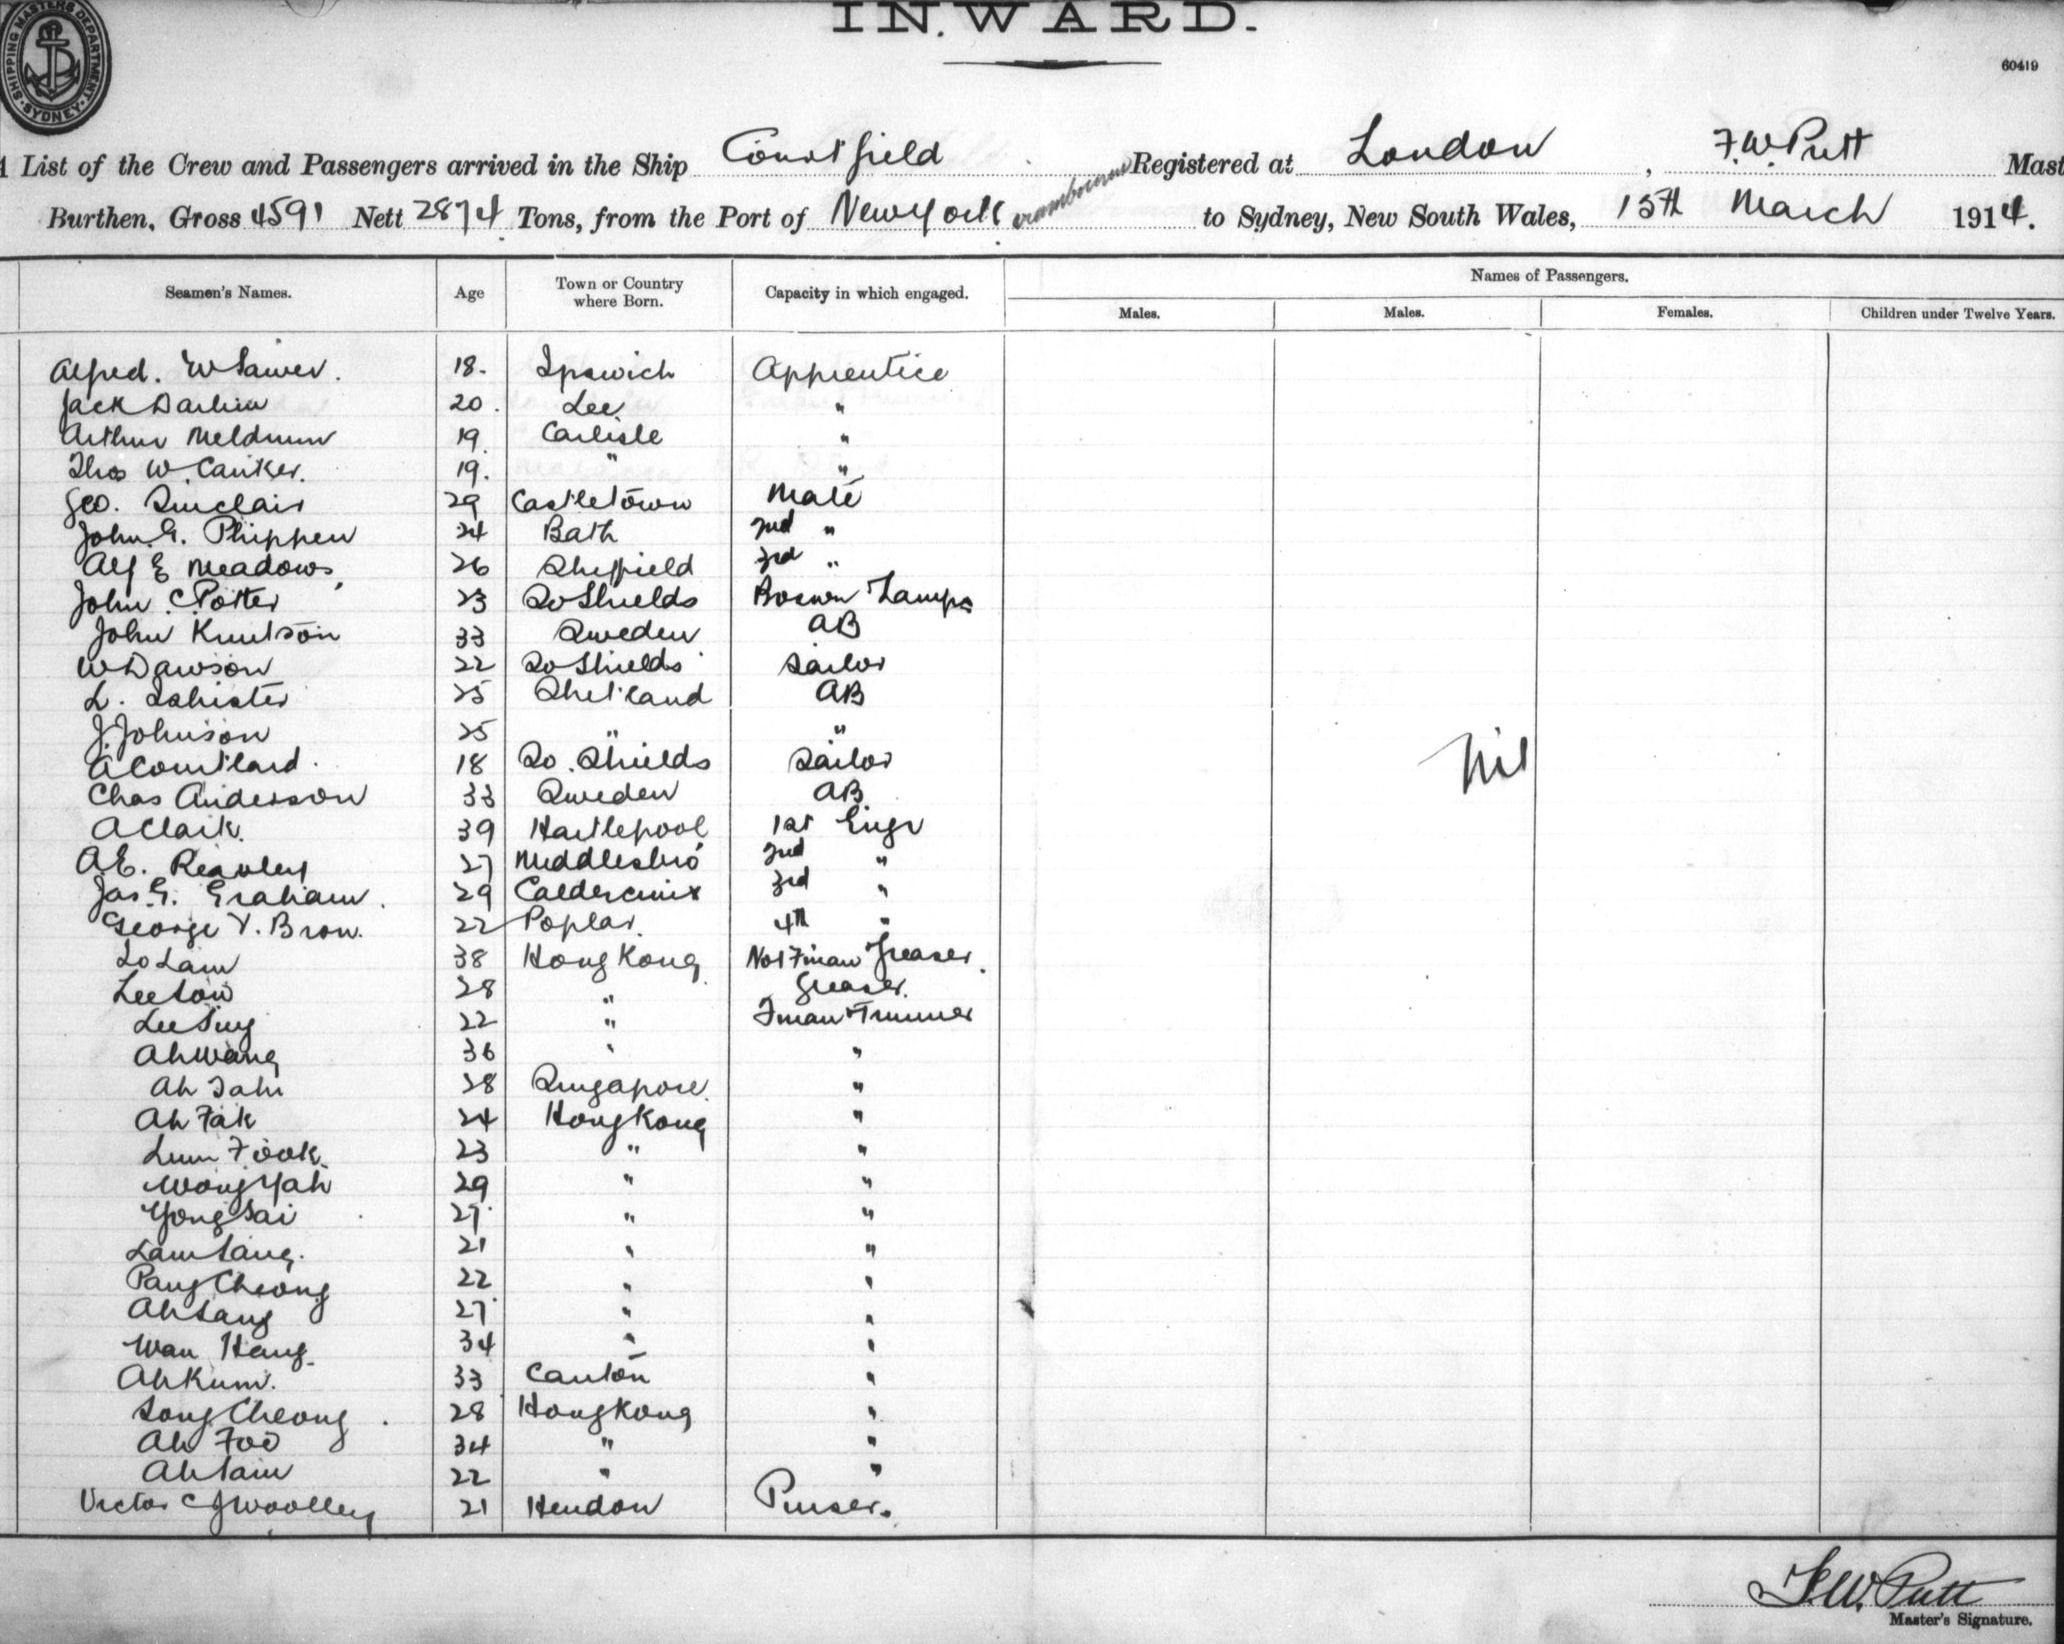 INWARD.
SHIPPING MASTERS DEPARTMENT
SYDNEY
60419
A List of the Crew and Passengers arrived in the Ship Courtfield Registered at London, F.W. Putt Mast
Burthen, Gross 4591 Nett 2874 Tons, from the Port of New York to Sydney, New South Wales, 15th March 1914.
Seamen's Names. Age Town or Country where Born. Capacity in which engaged. Names of Passengers.
Males. Males. Females. Children under Twelve Years.
Alfred. W 18. Ipswich Apprentice
Jack 20. Lee "
Arthur Meldrum 19. Carlisle "
Thos W. 19. " "
Geo. Sinclair 29 Castletown Mate
John G. Phippen 24 Bath 2nd "
Alf E Meadows 26 Sheffield 3rd "
John C. Potter 23 So Shields Bosun Lamps
John Knutson 33 Sweden AB
W Dawson 22 So Shields Sailor
L. 25 Shetland AB
J. Johnson 25 " "
A Courtland. 18 So. Shields Sailor
Nil
Chas Anderson 33 Sweden AB
A Clark. 39 Hartlepool 1st Engr
A.E. Reavley 27 Middlesbro' 2nd "
Jas. G. Graham. 29 3rd "
George V. Brow. 22 Poplar. 4th "
Lo Lam 38 Hong Kong No 1 Fman Greaser.
Lee Sow 28 " Greaser.
Lee Sing 22 " Fman & Trimmer
Ah Wang 36 " "
Ah 28 Singapore. "
Ah Fak 24 Hong Kong "
Lum Fook. 23 " "
Wong Yah 29 " "
Yong Sai 27 " "
Lam Sang. 21 " "
Pang Cheong 22 " "
Ah Sang 27 " "
Wan Heng. 34 " "
Ah Kum. 33 Canton "
Song Cheong. 28 Hong Kong "
Ah Foo 34 " "
Ah Sam 22 " "
Victor C J Woolley 21 Hendon Purser.
F.W. Putt
Master's Signature.